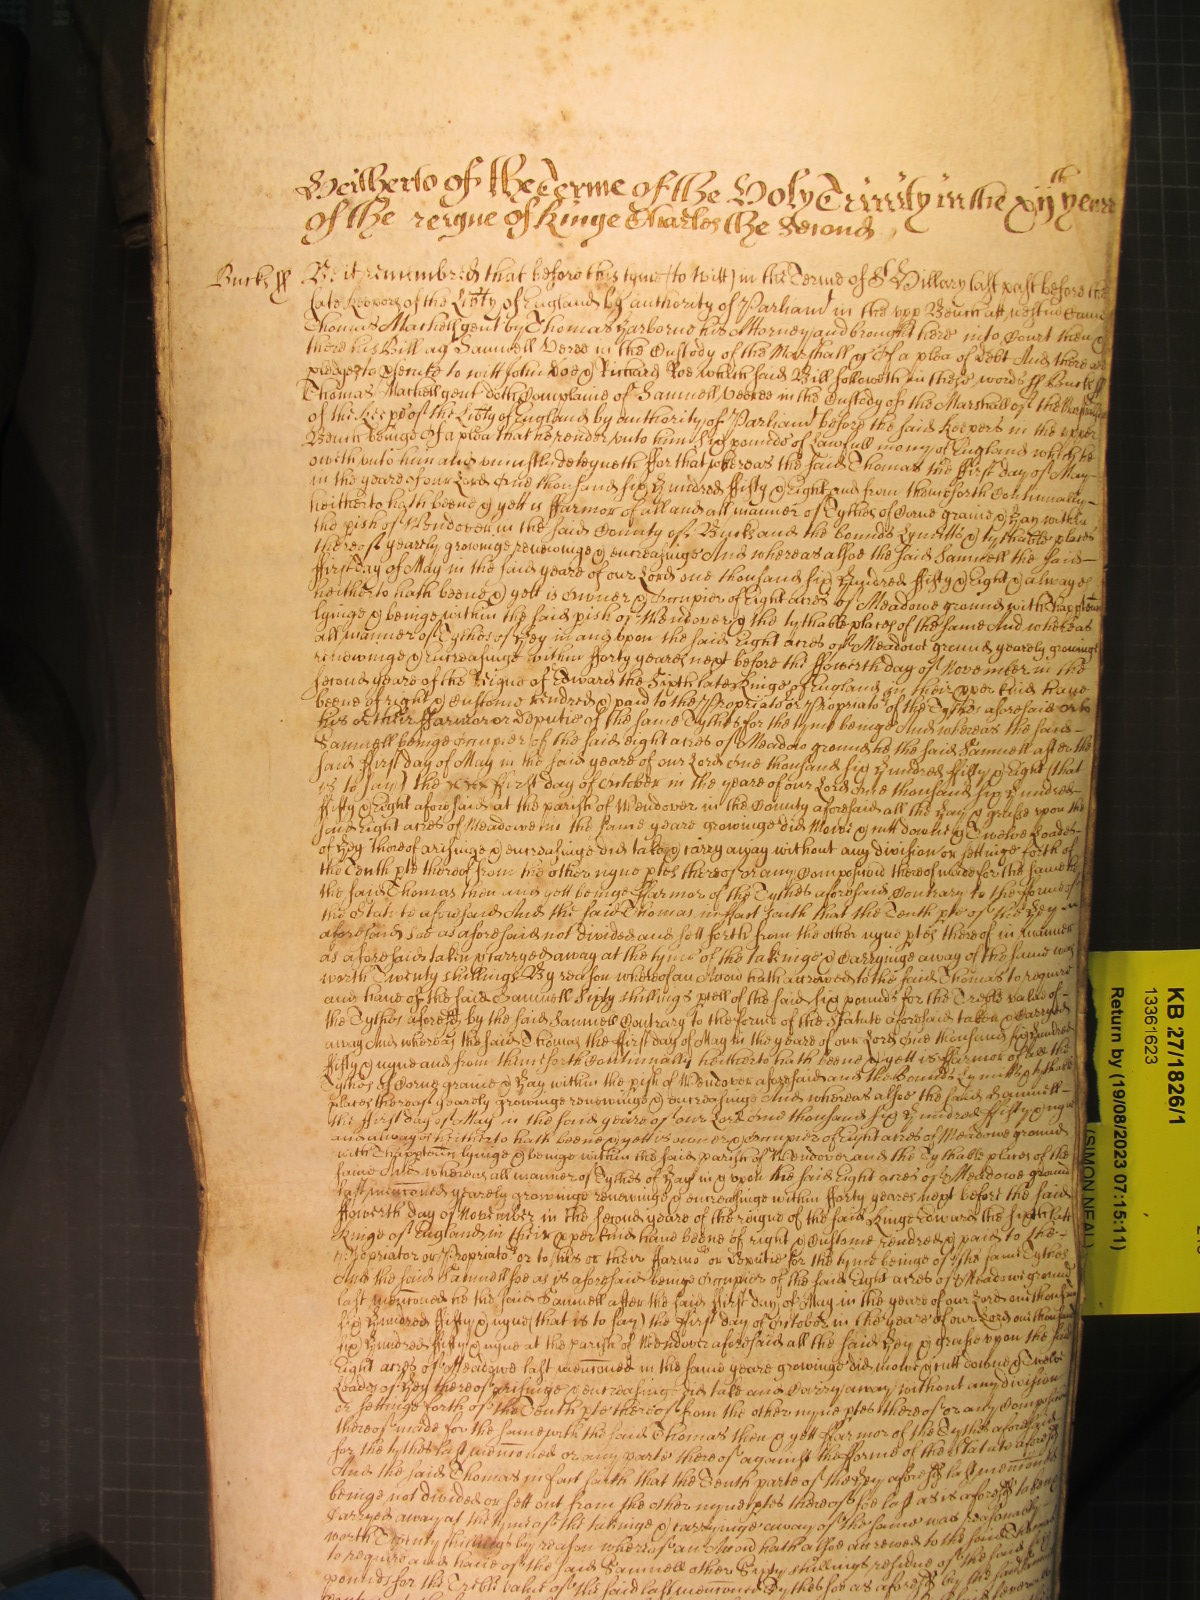 Heitherto of the Terme of the Holy Trinity in the xij th yeare
of the reigne of Kinge Charles the Second
Bucks ss Be it remembred that before this tyme (to witt) in the Terme of St Hillary last past before the
late Keepers of the Lib'ty of England by authority of Parliam' in the vpp Bench att Westm' came
Thomas Machell gent by Thomas Harborne his Attorney and brought here into Court then &
there his Bill ag' Samuell Veree in the Custody of the Marshall &c of a plea of debt And there are
pledges to p'secute to witt John Doe & Richard Roe which said Bill followeth in these words ss Bucks ss
Thomas Machell gent doth Complaine of Samuell Veeree in the Custody of the Marshall of the
of the Keep's of the Lib'ty of England by authority of Parliam' before the said Keepers in the vpper
Bench beinge Of a plea that he render vnto him six pounds of Lawfull mony of England which he
oweth vnto him and vniustly deteyneth ffor that whereas the said Thomas the ffirst day of May
in the yeare of our Lord One thousand six Hundred ffifty & Eight and from thenceforth Continually
heitherto hath beene & yett is ffarmor of all and all manner of Tythes of Corne graine & Hay within
the p'ish of Wendover in the said County of Bucks and the bounds Lymitts & tythable places
thereof yearely growinge renewinge & encreasinge And whereas alsoe the said Samuell the said
ffirst day of May in the said yeare of our Lord one thousand six Hundred ffifty & Eight & alwayes
heitherto hath beene & yett is Owner & Occupier of Eight acres of Meadowe ground with Th'app'ten'
lyinge & beinge within the said p'ish of Wendover & the tythable places of the same And whereas
all manner of Tythes of Hey in and vpon the said Eight acres of Meadowe ground yearely growinge
renewinge & Encreasinge within fforty yeares next before the ffowerth day of November in the
second yeare of the Reigne of Edward the Sixth late Kinge of England in their p'per kind haue
beene of right & Custome rendred & paid to the Propriator or Propriato's of the Tythes aforesaid or to
his or their ffarmor or deputie of the same Tythes for the tyme beinge And whereas the said
Samuell beinge Occupier of the said eight acres of Meadow ground he the said Samuell after the
said ffirst day of May in the said yeare of our Lord one thousand six Hundred ffifty & Eight (that
is to say) the ffirst day of October in the yeare of our Lord One thousand six Hundred
ffifty & Eight aforesaid at the parish of Wendover in the County aforesaid all the Hay & grasse vpon the
said Eight acres of Meadowe in the same yeare growinge did Mowe & cutt downe & Twelve Loades
of Hey thereof arisinge & encreasinge did take & carry away without any division or settinge forth of
the Tenth p'te thereof from the other nyne p'tes thereof or any Composic'on thereof made for the same with
the said Thomas then and yett beinge ffarmor of the Tythes aforesaid Contrary to the fforme of
the Statute aforesaid And the said Thomas in ffact saith that the Tenth p'te of the Hey
aforesaid soe as aforesaid not divided and sett forth from the other nyne p'tes thereof in manner
as aforesaid taken & carryed away at the tyme of the takinge & Carryinge away of the same was
worth Twenty shillings By reason whereof an Acc'on hath accrewed to the said Thomas to require
and haue of the said Samuell Sixty shillings p'cell of the said six pounds for the Treble value of
the Tythes afores'd by the said Samuell Contrary to the forme of the Statute aforesaid taken & Carryed
away And whereas the said Thomas the ffirst day of May in the yeare of our Lord One thousand six Hundred
ffifty & nyne and from thenceforth Continually heitherto hath beene & yett is ffarmor of all the
Tythes of Corne graine & Hay within the p'ish of Wendover aforesaid and the Bounds Lymitts & tythable
places thereof yearely growinge renewinge & encreasinge And whereas alsoe the said Samuell
the ffirst day of May in the said yeare of our Lord One thousand six Hundred ffifty & nyne
and alwayes heitherto hath beene & yett is owner & Occupier of Eight acres of Meadowe ground
with Th'app'ten' lyinge & beinge within the said parish of Wendover and the Tythable places of the
same And whereas all manner of Tythes of Hay in & vpon the said Eight acres of Meadowe ground
last menc'oned yearely growinge renewinge & encreasinge within fforty yeares next before the said
ffowerth day of November in the second yeare of the reigne of the said Kinge Edward the Sixth late
Kinge of England in their p'per kind haue beene of right & Custome rendred & paid to the
Propriator or Propriato's or to his or theire ffarmo' or deputie for the tyme beinge of the same Tythes
And the said Samuell soe as is aforesaid beinge Occupier of the said Eight acres of Meadowe ground
last menc'oned he the said Samuell after the said ffirst day of May in the yeare of our Lord one thousand
six Hundred ffifty & nyne (that is to say) the ffirst day of October in the yeare of our Lord one thousand
six Hundred ffifty & nyne at the parish of Wendover aforesaid all the said Hey & grasse vpon the said
Eight acres of Meadowe last menc'oned in the same yeare growinge did mowe & cutt downe & Twelve
Loades of Hey thereof arisinge & encreasinge did take and Carry away without any division
or settinge forth of the Tenth p'te thereof from the other nyne p'tes thereof or any Composic'on
thereof made for the same with the said Thomas then & yett ffarmor of the Tythes aforesaid
for the tythes last menc'oned or any parte thereof against the fforme of the Statute afores'd
And the said Thomas in fact saith that the Tenth parte of the Hey afores'd last menc'oned
beinge not divided or sett out from the other nyne p'tes thereof soe last as is afores'd
Carryed away at the tyme of the takinge & carryinge away of the same was reasonably
worth Twenty shillings by reason whereof an Acc'on hath alsoe accrewed to the said Thomas
to require and haue of the said Samuell other Sixty shillings residue of the said six
pounds for the Treble value of the said last menc'oned Tythes soe as afores'd by the said Samuell
KB 27/1826/1
13361623
(SIMON NEAL)
Return by (19/08/2023 07:15:11)